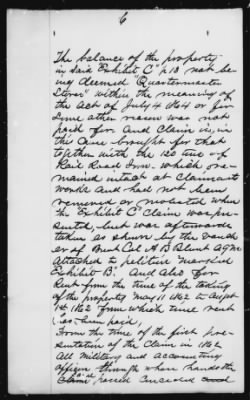 6
The balance of the property
in said Exhibit C" p 18 not be
ing deemed "Quartermaster
Stores" within the meaning of
the act of July 4 1864 or for
some other reason was not
paid for and claim is, in
this case brought for that
together with the 120 tons of
Rail Road Iron which re-
mained intact at Claimants
works and had not been
removed or molested when
the Exhibit C claim was pre-
sented, but was afterwards
taken as shown by the vouch
er of Brvt Col A B Blunt AQM
attached to petition marked
Exhibit B". And also for
Rent from the time of the taking
of the property May 11 1862 to Augst
1st 1862 from which time rent
has been paid,
From the time of the first pre-
sentation of the claim in 1862
all military and accounting
officers through whose hands the
claim passed conceded